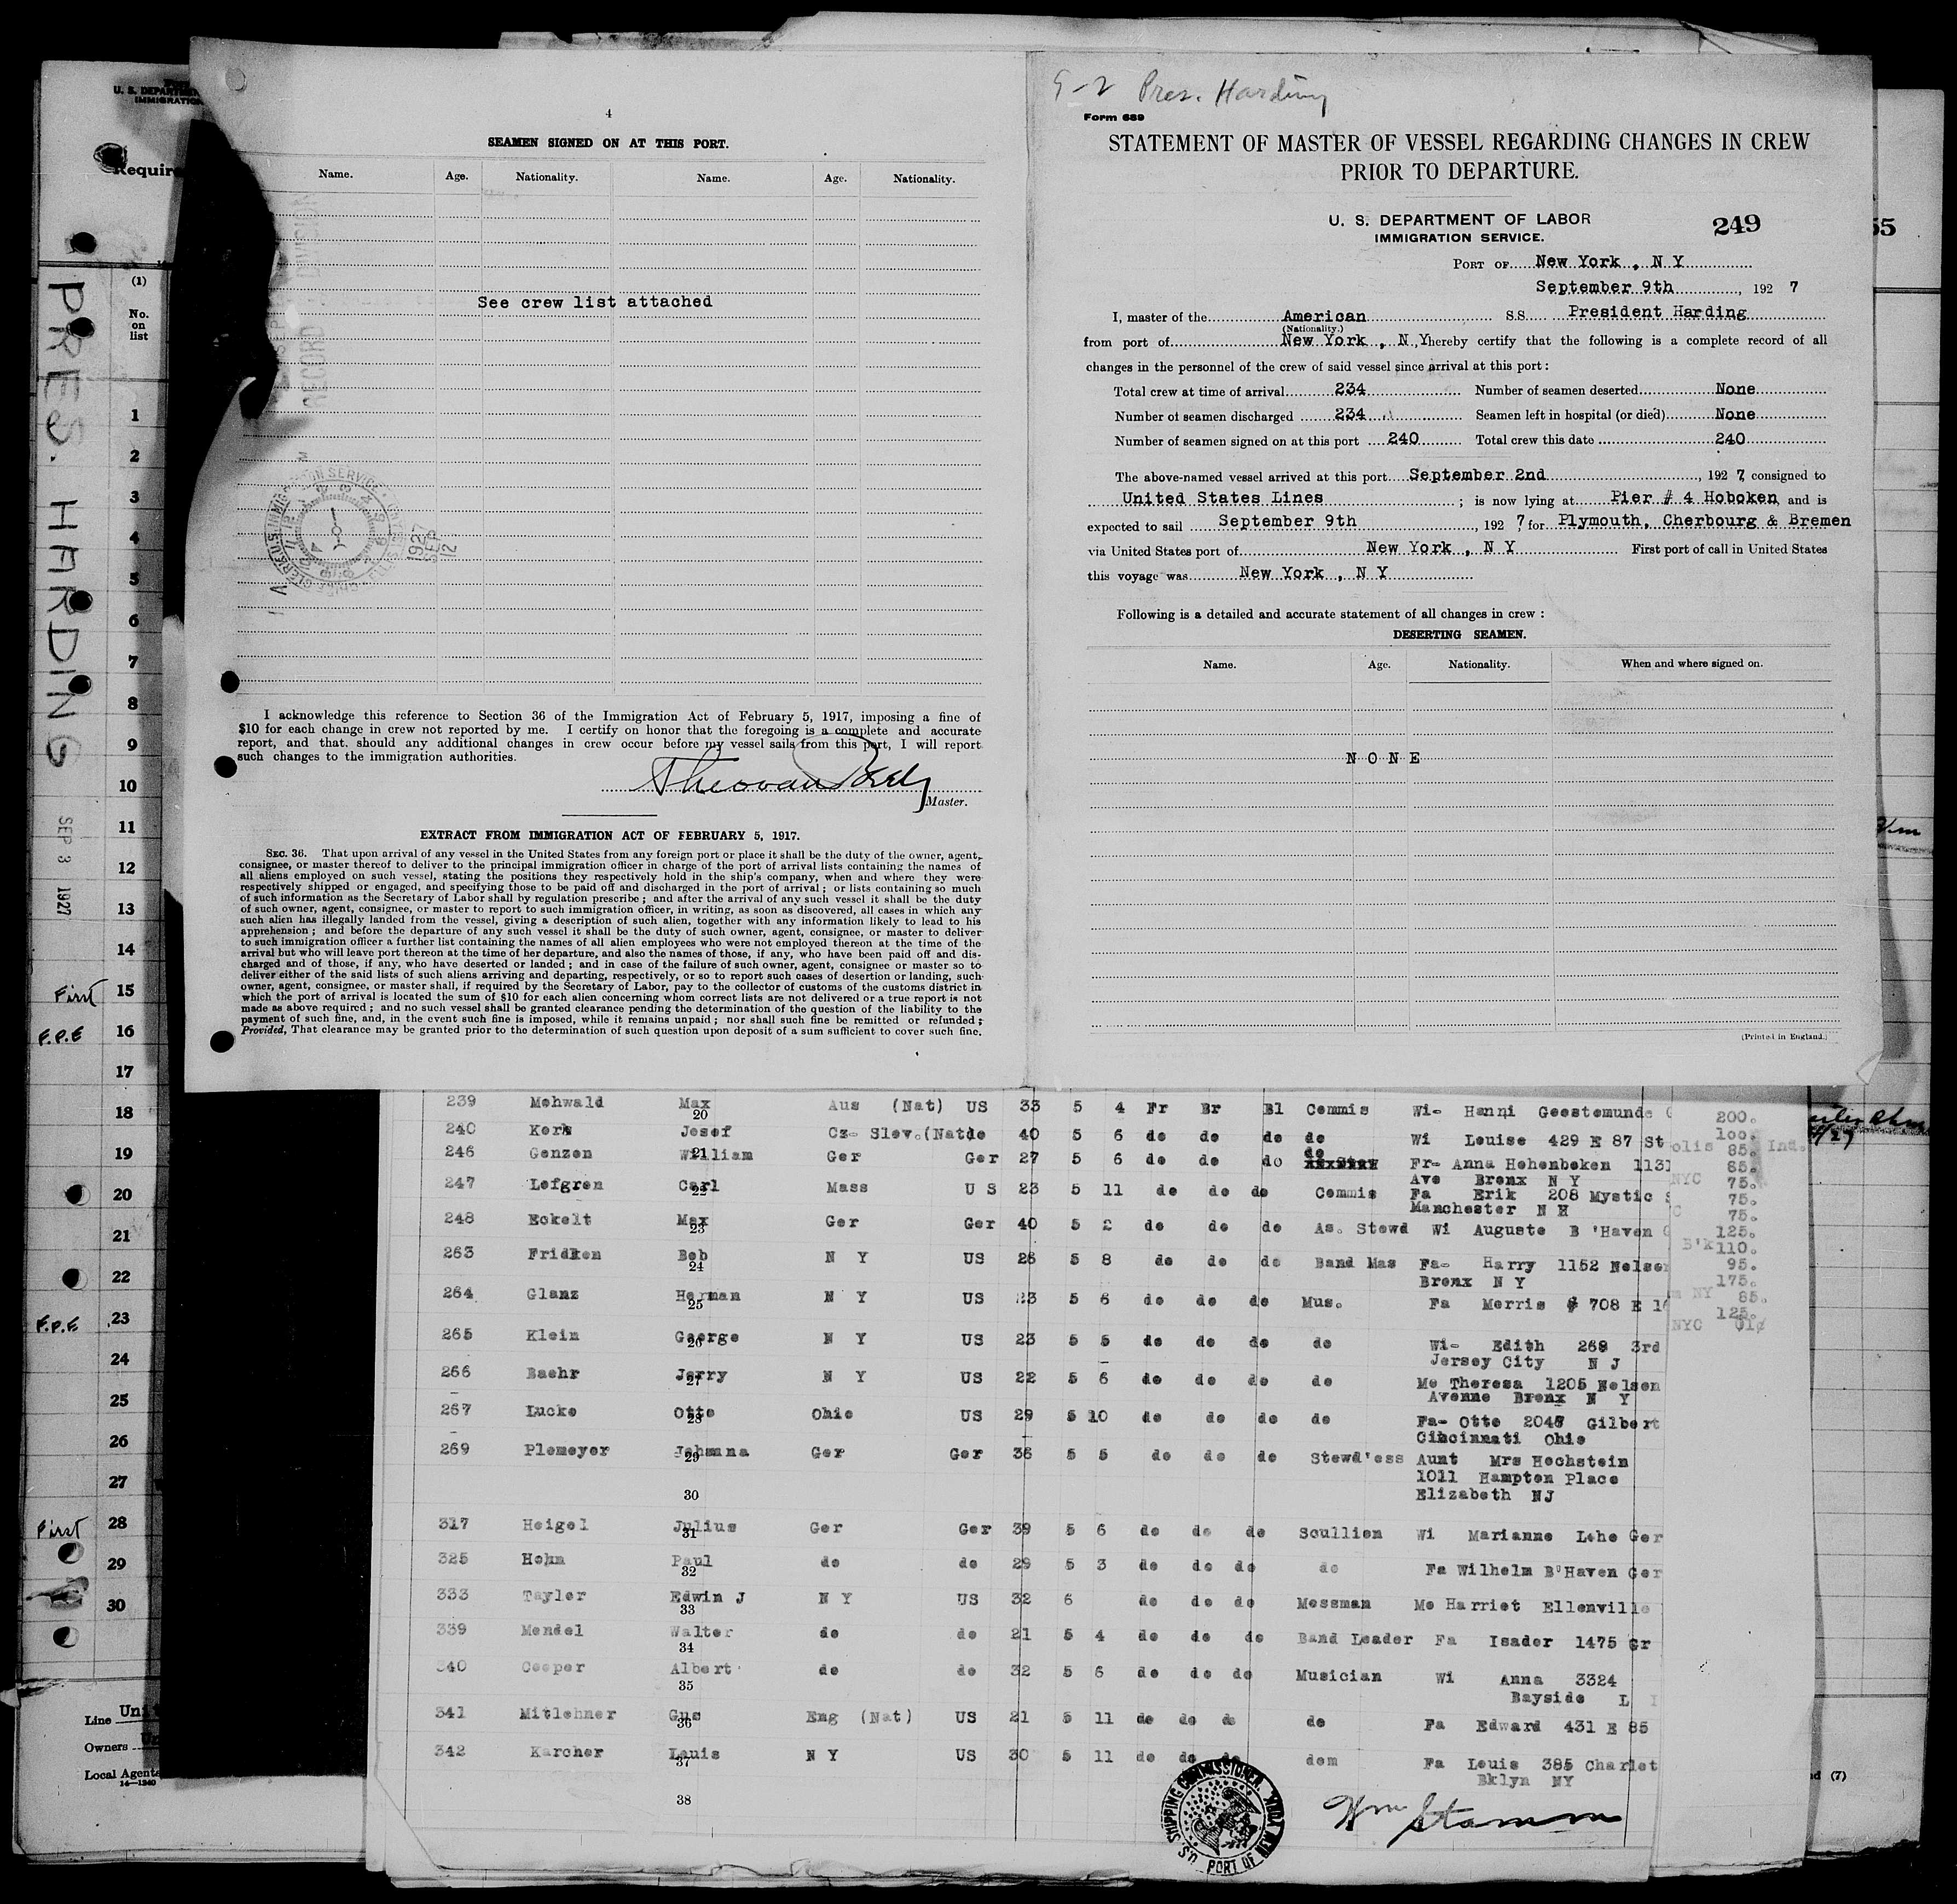 U. S. DEPARTMENT
IMMIGRATION
Require
PRES. HARDING
SEP 3 1927
(1)
No.
on
list
1
2
3
4
5
6
7
8
9
10
11
12
13
14
First 15
F.P.E 16
17
18
19
20
21
22
F.P.E 23
24
25
26
27
First 28
29
30
Line Uni
Owners
Local Agents
14—1240
4
SEAMEN SIGNED ON AT THIS PORT.
Name. Age. Nationality. Name. Age. Nationality.
See crew list attached
1927
SEP
12
I acknowledge this reference to Section 36 of the Immigration Act of February 5, 1917, imposing a fine of
$10 for each change in crew not reported by me. I certify on honor that the foregoing is a complete and accurate
report, and that. should any additional changes in crew occur before my vessel sails from this port, I will report
such changes to the immigration authorities.
Master.
EXTRACT FROM IMMIGRATION ACT OF FEBRUARY 5, 1917.
SEC. 36. That upon arrival of any vessel in the United States from any foreign port or place it shall be the duty of the owner, agent,
consignee, or master thereof to deliver to the principal immigration officer in charge of the port of arrival lists containing the names of
all aliens employed on such vessel, stating the positions they respectively hold in the ship's company, when and where they were
respectively shipped or engaged, and specifying those to be paid off and discharged in the port of arrival; or lists containing so much
of such information as the Secretary of Labor shall by regulation prescribe; and after the arrival of any such vessel it shall be the duty
of such owner, agent, consignee, or master to report to such immigration officer, in writing, as soon as discovered, all cases in which any
such alien has illegally landed from the vessel, giving a description of such alien, together with any information likely to lead to his
apprehension; and before the departure of any such vessel it shall be the duty of such owner, agent, consignee, or master to deliver
to such immigration officer a further list containing the names of all alien employees who were not employed thereon at the time of the
arrival but who will leave port thereon at the time of her departure, and also the names of those, if any, who have been paid off and dis-
charged and of those, if any, who have deserted or landed; and in case of the failure of such owner, agent, consignee or master so to
deliver either of the said lists of such aliens arriving and departing, respectively, or so to report such cases of desertion or landing, such
owner, agent, consignee, or master shall, if required by the Secretary of Labor, pay to the collector of customs of the customs district in
which the port of arrival is located the sum of $10 for each alien concerning whom correct lists are not delivered or a true report is not
made as above required; and no such vessel shall be granted clearance pending the determination of the question of the liability to the
payment of such fine, and, in the event such fine is imposed, while it remains unpaid; nor shall such fine be remitted or refunded;
Provided, That clearance may be granted prior to the determination of such question upon deposit of a sum sufficient to cover such fine.
9-2 Pres. Harding
Form 689
STATEMENT OF MASTER OF VESSEL REGARDING CHANGES IN CREW
PRIOR TO DEPARTURE.
U. S. DEPARTMENT OF LABOR
IMMIGRATION SERVICE.
249
55
PORT OF New York , N Y
September 9th , 192 7
I, master of the American S.S. President Harding
(Nationality.)
from port of New York , N.Y hereby certify that the following is a complete record of all
changes in the personnel of the crew of said vessel since arrival at this port:
Total crew at time of arrival 234 Number of seamen deserted None
Number of seamen discharged 234 Seamen left in hospital (or died) None
Number of seamen signed on at this port 240 Total crew this date 240
The above-named vessel arrived at this port September 2nd , 192 7, consigned to
United States Lines ; is now lying at Pier # 4 Hoboken, and is
expected to sail September 9th , 192 7 for Plymouth, Cherbourg & Bremen
via United States port of New York , N Y First port of call in United States
this voyage was New York , N Y
Following is a detailed and accurate statement of all changes in crew:
DESERTING SEAMEN.
Name. Age. Nationality. When and where signed on.
N O N E
(Printed in England.)
239 Mehwald Max Aus (Nat) US 33 5 4 Fr Br Bl Commis Wi- Hanni Geestemunde G
20
240 Kork Josef Cz- Slev.(Nat)de 40 5 6 do do do do Wi Louise 429 E 87 St
246 Genzen William Ger Ger 27 5 6 do do do do Fr- Anna Hohenboken 1131
21
Ave Bronx N Y
247 Lofgren Carl Mass U S 23 5 11 do do do Commis Fa Erik 208 Mystic S
22
Manchester N H
248 Eckelt Max Ger Ger 40 5 2 do do do As. Stewd Wi Auguste B 'Haven G
23
263 Fridken Bob N Y US 26 5 8 do do do Band Mas Fa- Harry 1152 Nelson
24
Bronx N Y
264 Glanz Herman N Y US 23 5 6 do do do Mus. Fa Morris # 708 E 16
25
265 Klein George N Y US 23 5 5 do do do do Wi- Edith 268 3rd
26
Jersey City N J
266 Baehr Jerry N Y US 22 5 6 do do do do Mo Theresa 1205 Nelson
27
Avenue Bronx N Y
267 Lucke Otto Ohio US 29 5 10 do do do do Fa- Otto 2048 Gilbert
28
Cincinnati Ohio
269 Plemeyer Johanna Ger Ger 36 5 5 do do do Stewd'ess Aunt Mrs Hochstein
29
1011 Hampton Place
Elizabeth NJ
30
317 Heigel Julius Ger Ger 39 5 6 do do do Scullion Wi Marianne Lehe Ger
31
325 Hohm Paul do do 29 5 3 do do do do Fa Wilhelm B'Haven Ger
32
333 Tayler Edwin J N Y US 32 6 do do do Messman Mo Harriet Ellenville
33
339 Mendel Walter do do 21 5 4 do do do Band Leader Fa Isador 1475 Gr
34
340 Cooper Albert do do 32 5 6 do do do Musician Wi Anna 3324
35
Bayside L I
341 Mitlehner Gus Eng (Nat) US 21 5 11 do do do do Fa Edward 431 E 85
36
342 Karcher Louis N Y US 30 5 11 do do do dom Fa Louis 385 Charlet
37
Bklyn NY
38
U.S. SHIPPING COMMISSIONER PORT OF NEW YORK
Wm Stamm
200.
100.
olis 85. Ind.
85.
NYC 75.
75.
C 75.
125.
B'k 110.
95.
175.
m NY 85.
125.
NYC 01¢
d (7)